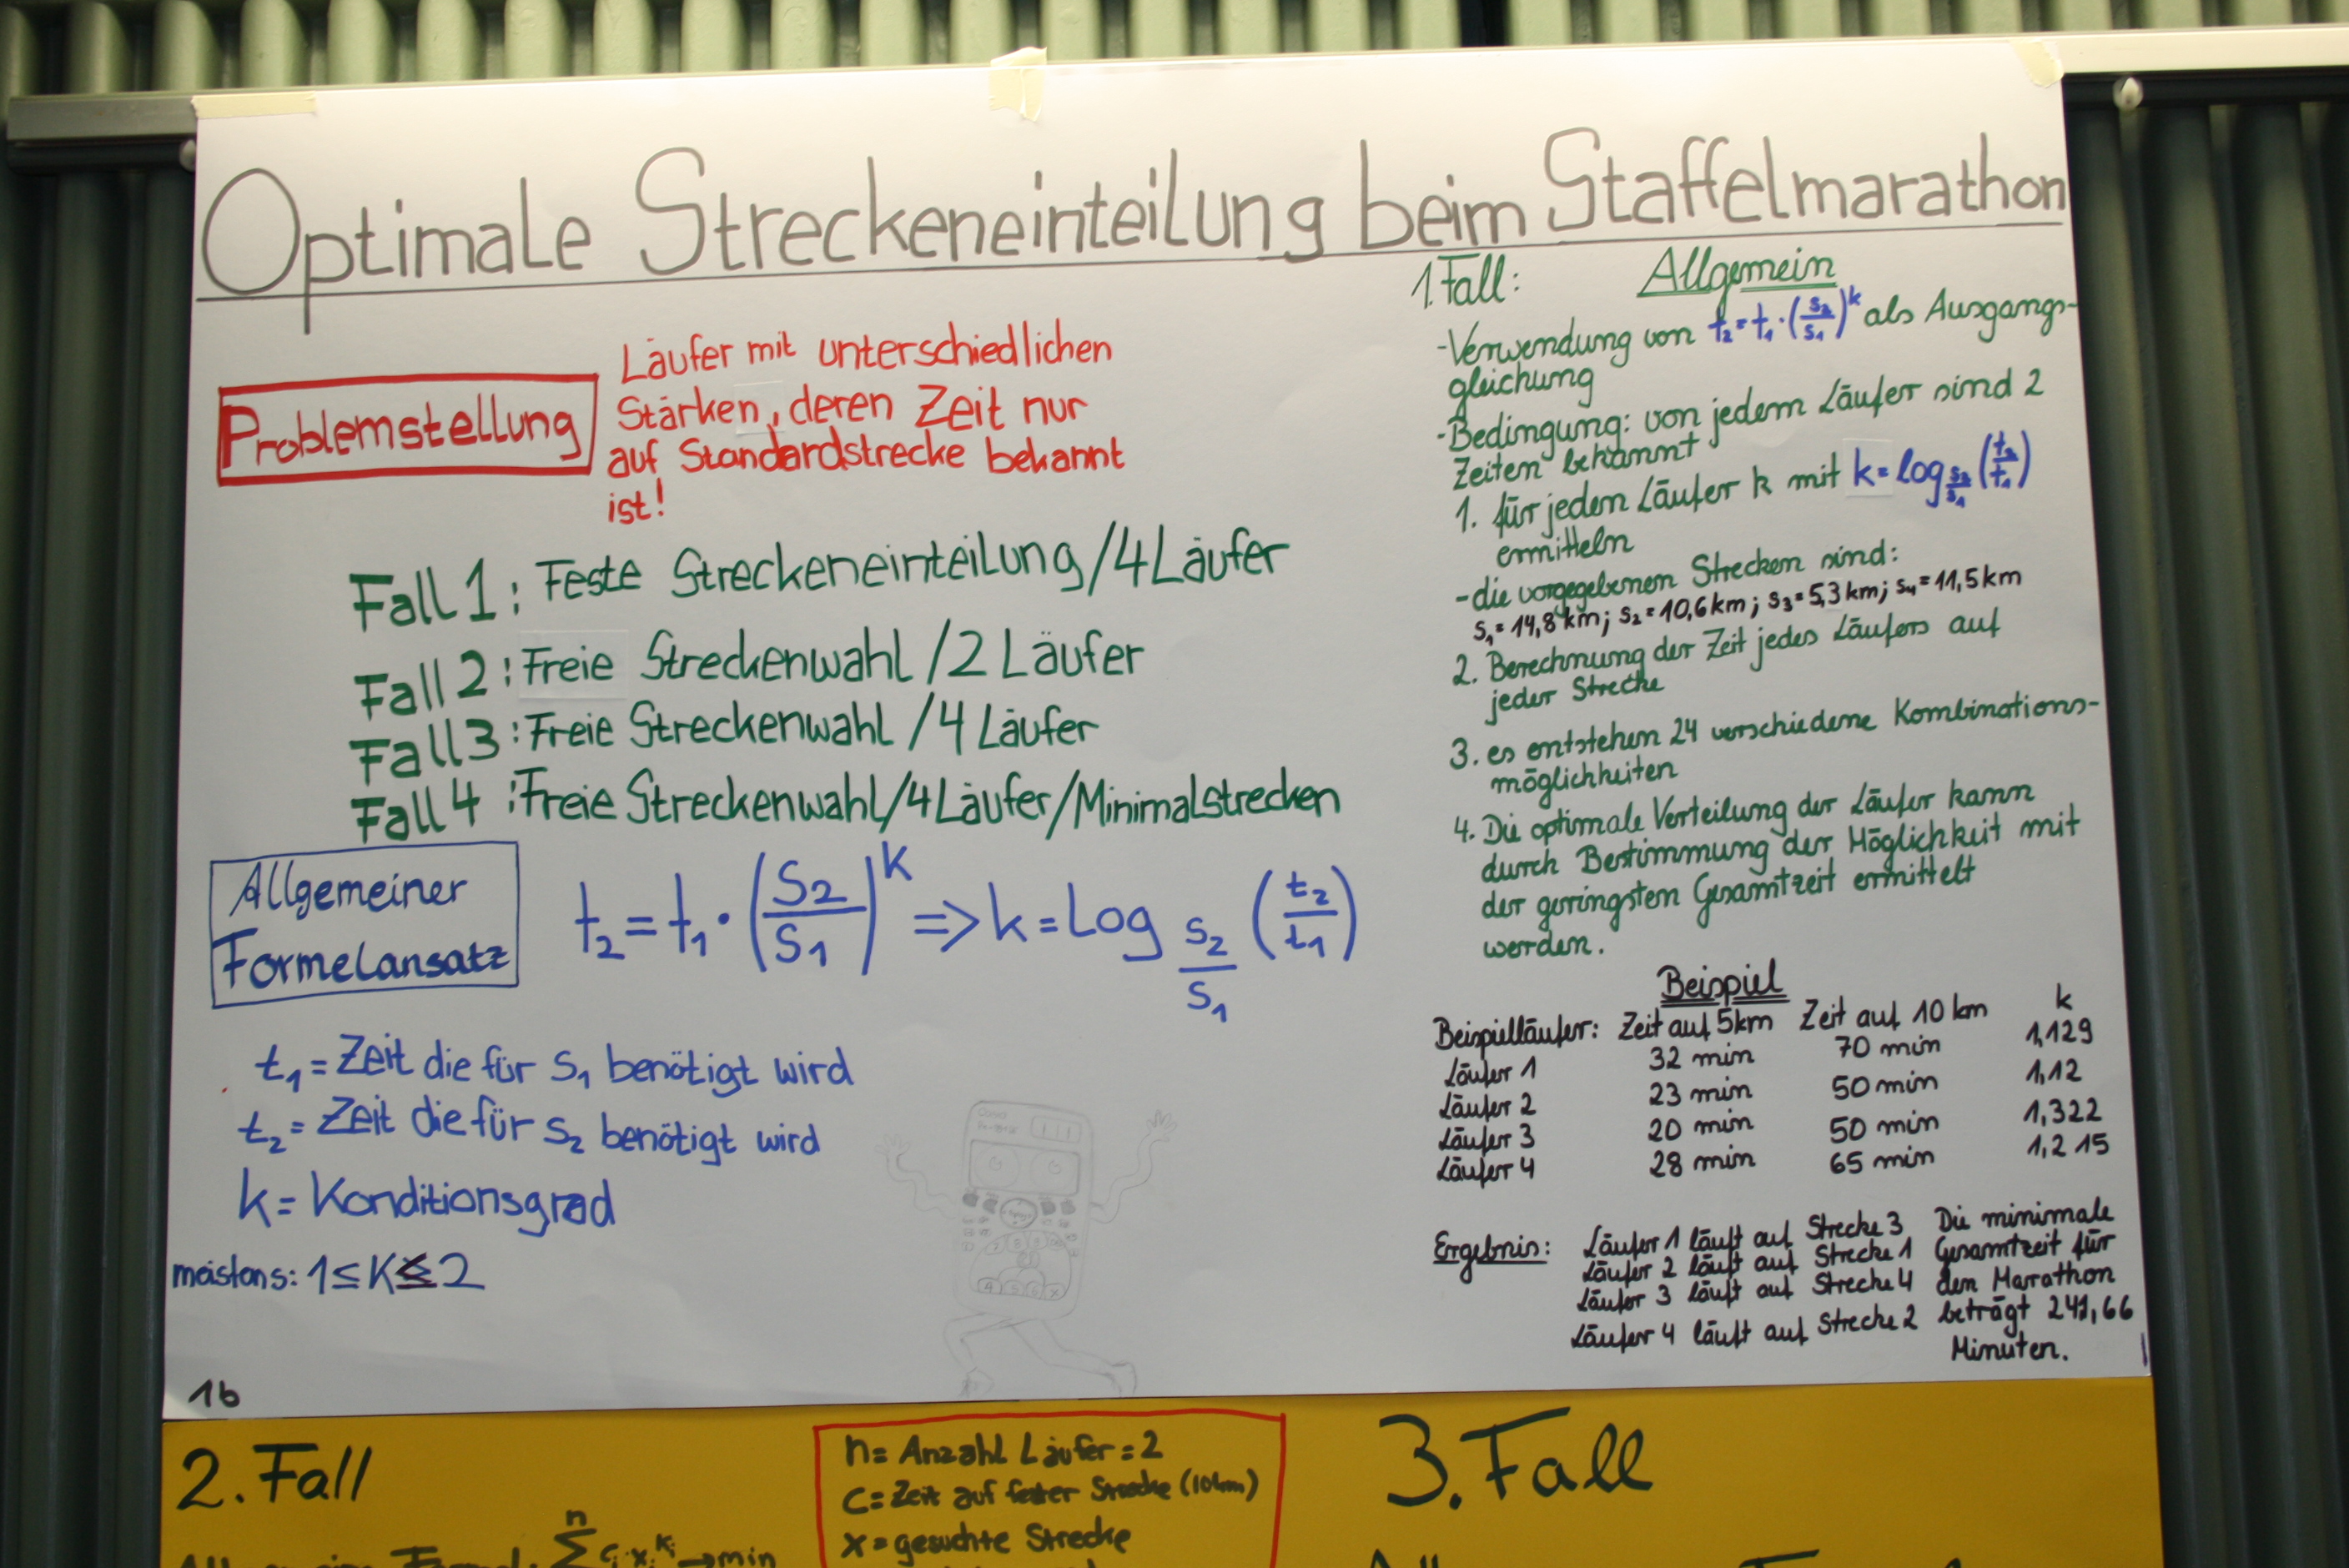 Optimale Streckeneinteilung beim Staffelmarathon
Problemstellung
Läufer mit unterschiedlichen
Stärken, deren Zeit nur
auf Standardstrecke bekannt
ist!
Fall 1: Feste Streckeneinteilung/4 Läufer
Fall 2: Freie Streckenwahl/2 Läufer
Fall 3: Freie Streckenwahl/4 Läufer
Fall 4: Freie Streckenwahl/4 Läufer/Minimalstrecken
Allgemeiner
Formelansatz
t₂ = t₁ · (S₂/S₁)^k => k = Log_{S₂/S₁} (t₂/t₁)
t₁ = Zeit die für S₁ benötigt wird
t₂ = Zeit die für S₂ benötigt wird
k = Konditionsgrad
meistens: 1 ≤ K ≤ 2
16
1. Fall: Allgemein
- Verwendung von t₂ = t₁ · (s₂/s₁)^k als Ausgangs-
gleichung
- Bedingung: von jedem Läufer sind 2
Zeiten bekannt
1. für jeden Läufer k mit k = log_{s₂/s₁} (t₂/t₁)
ermitteln
- die vorgegebenen Strecken sind:
s₁ = 14,8 km; s₂ = 10,6 km; s₃ = 5,3 km; s₄ = 11,5 km
2. Berechnung der Zeit jedes Läufers auf
jeder Strecke
3. es entstehen 24 verschiedene Kombinations-
möglichkeiten
4. Die optimale Verteilung der Läufer kann
durch Bestimmung der Möglichkeit mit
der geringsten Gesamtzeit ermittelt
werden.
Beispiel
Beispielläufer: Zeit auf 5km Zeit auf 10 km k
Läufer 1 32 min 70 min 1,129
Läufer 2 23 min 50 min 1,12
Läufer 3 20 min 50 min 1,322
Läufer 4 28 min 65 min 1,215
Ergebnis: Läufer 1 läuft auf Strecke 3
Läufer 2 läuft auf Strecke 1
Läufer 3 läuft auf Strecke 4
Läufer 4 läuft auf Strecke 2
Die minimale
Gesamtzeit für
den Marathon
beträgt 241,66
Minuten.
2. Fall
n = Anzahl Läufer = 2
C = Zeit auf fester Strecke (10km)
x = gesuchte Strecke
3. Fall